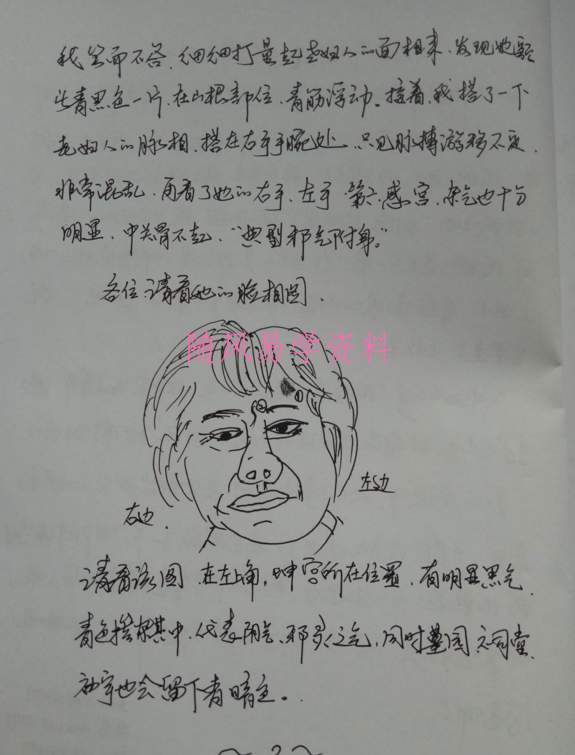 我笑而不答，细细打量起老妇人的面相来，发现她额
些青黑色一片，在山根部位，青筋浮动。接着，我搭了一下
老妇人的脉相，搭在右手手腕处，只见脉搏游移不定，
非常混乱，再看了她的右手，左手 第六感宫，杂气也十分
明显，中关骨不起，“典型邪气附身。”
各位请看她的脸相图．
随风易学资料
左边
右边．
请看该图 在左上角，坤宫所在位置，有明显黑气，
青色掺杂其中，代表阴气、邪灵之气，同时墓园 祠堂
神宇也会留下青暗之。
2